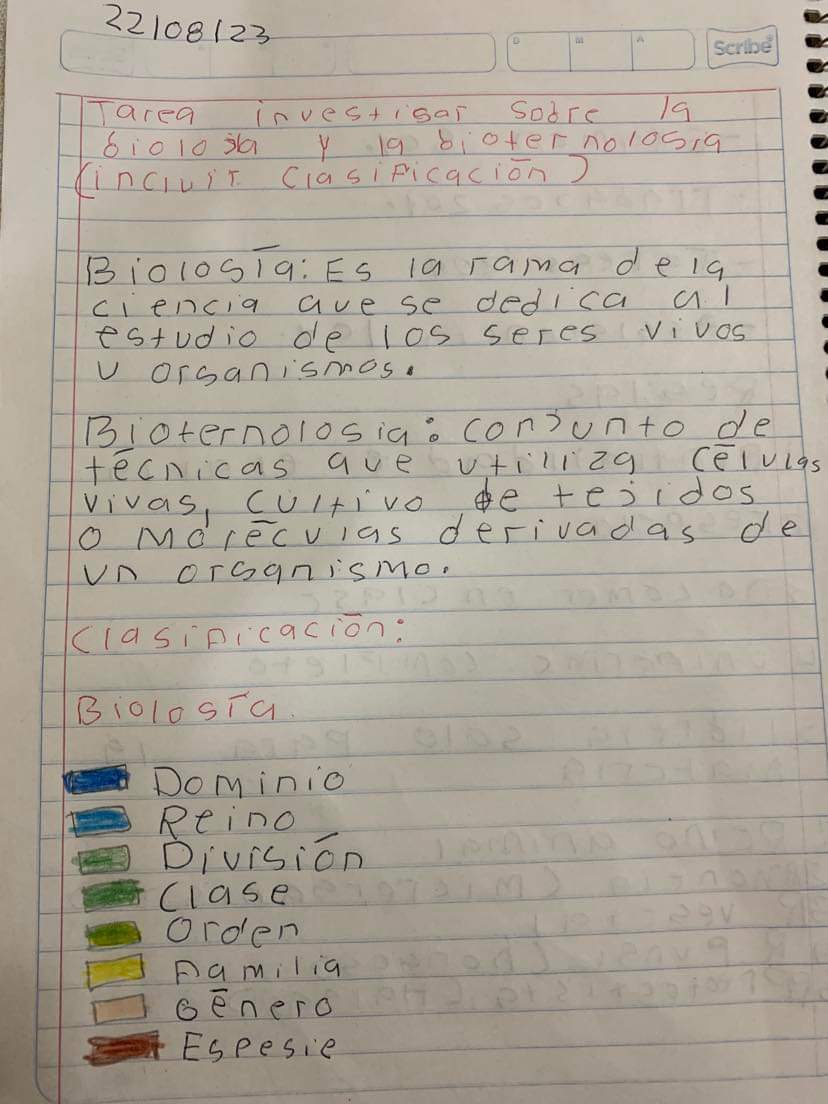 22/08/23
D M A
Scribe
Tarea investigar sobre la
biología y la bioternología
(incluir clasificación)
Biología: Es la rama de la
ciencia que se dedica al
estudio de los seres vivos
u organismos.
Bioternología: conjunto de
técnicas que utiliza células
vivas, cultivo de tejidos
o moléculas derivadas de
un organismo.
Clasificación:
Biología
Dominio
Reino
División
Clase
Orden
Familia
Género
Espesie